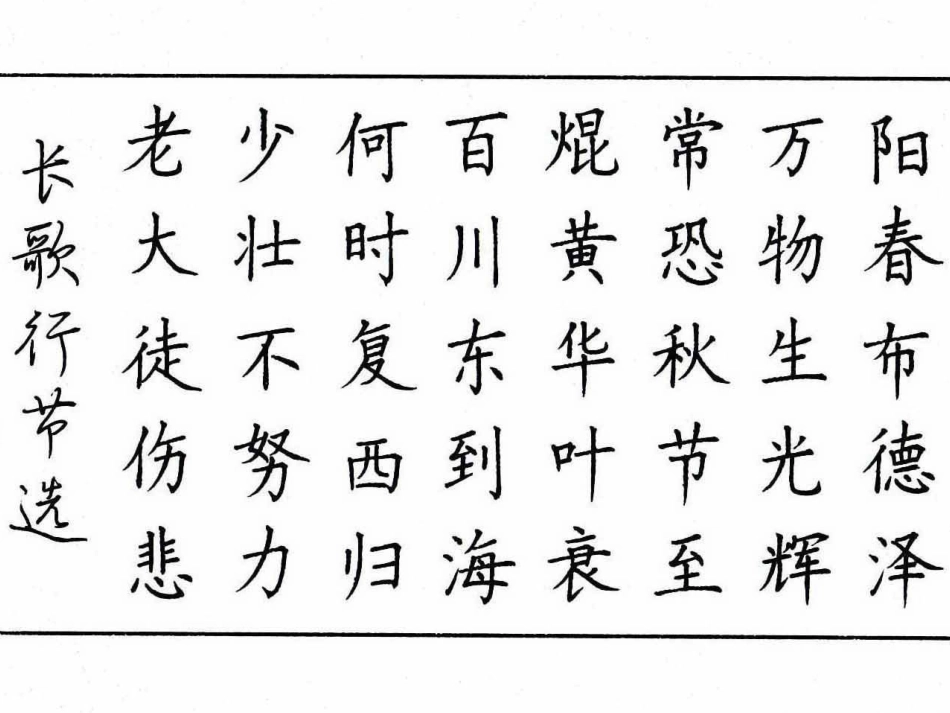 阳春布德泽
万物生光辉
常恐秋节至
焜黄华叶衰
百川东到海
何时复西归
少壮不努力
老大徒伤悲
长歌行节选